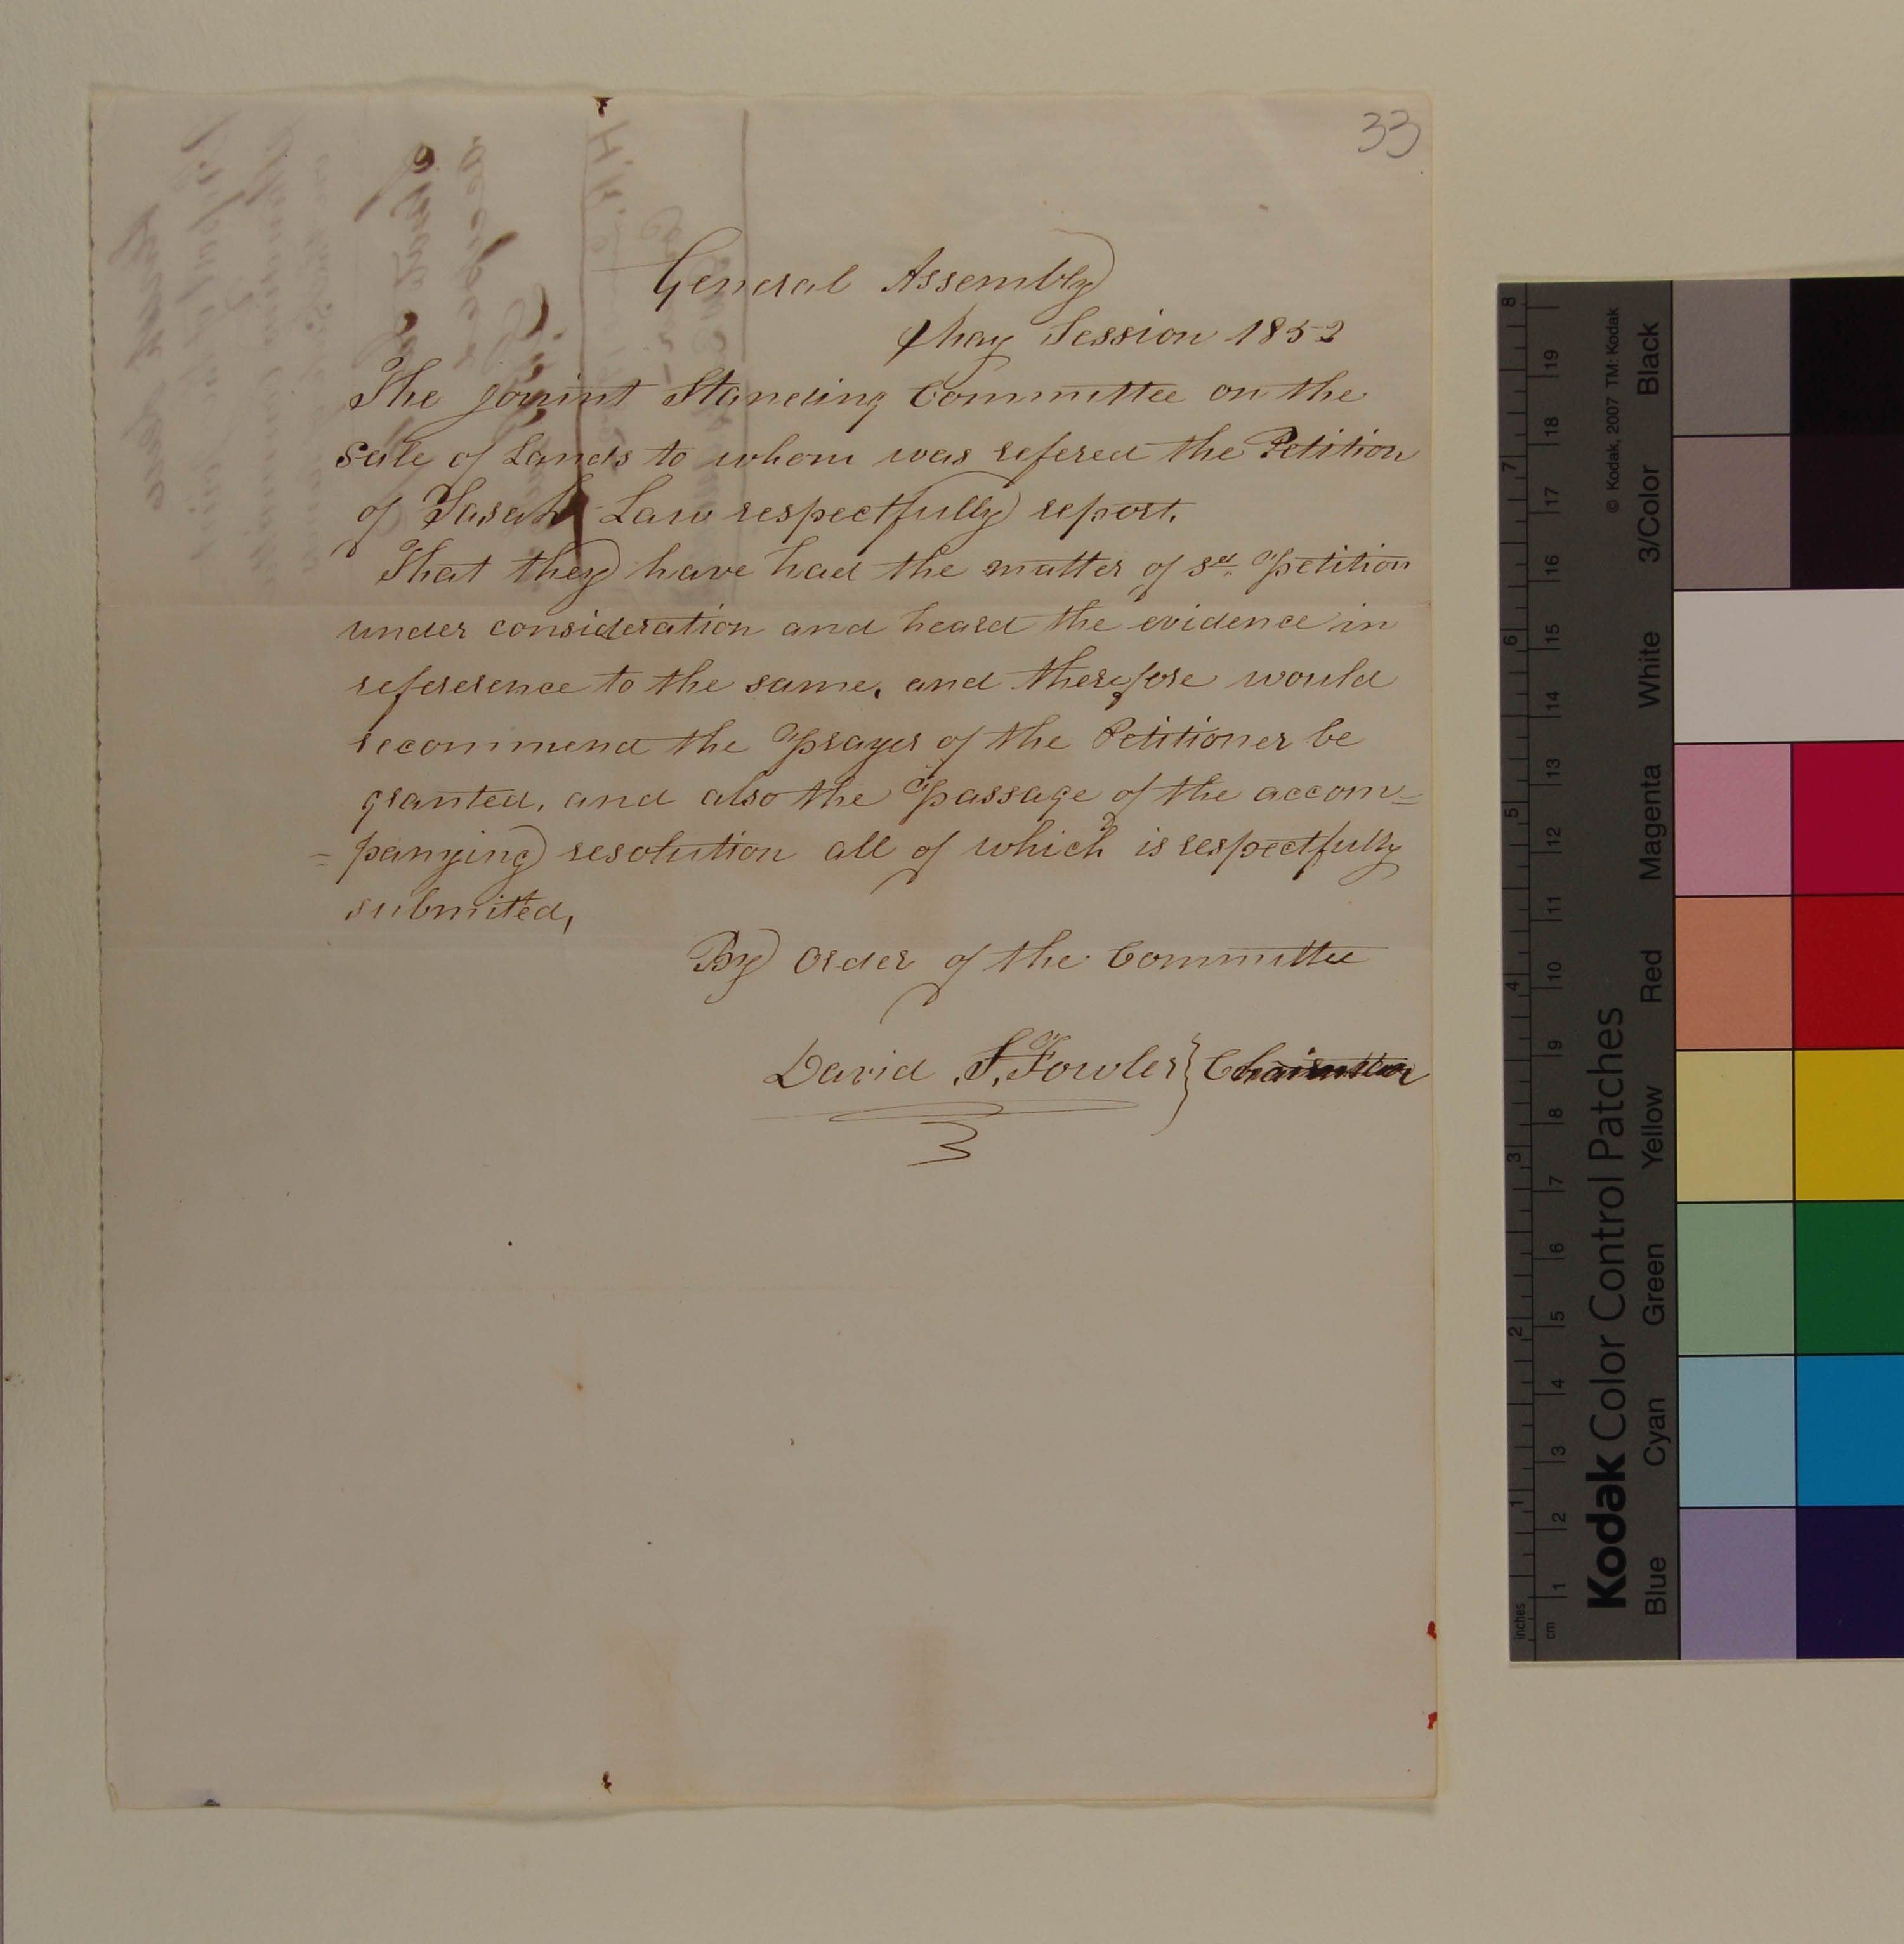 33
General Assembly
May Session 1853
The joinint Standing Committee on the
Sale of Lands to whom was refered the Petition
of Sarah Law respectfully report.
That they have had the matter of sd. Petition
under consideration and heard the evidence in
reference to the same, and therefore would
recommend the Prayer of the Petitioner be
granted, and also the Passage of the accom=
=panying resolution all of which is respectfully
submited,
By Order of the Committee
David S. Fowler } Chairman
inches 1 2 3 4 5 6 7 8
cm 1 2 3 4 5 6 7 8 9 10 11 12 13 14 15 16 17 18 19
Kodak Color Control Patches
© Kodak, 2007 TM: Kodak
Blue Cyan Green Yellow Red Magenta White 3/Color Black